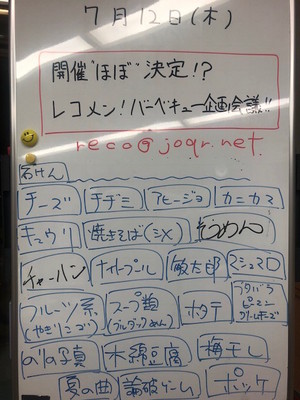 7月12日(木)
開催"ほぼ"決定!?
レコメン!バーベキュー企画会議!!
reco@joqr.net
チーズ チヂミ アヒージョ カニカマ
キュウリ 焼きそば(シメ) そうめん
チャーハン ナイトプール 敏太郎 マシュマロ
フルーツ系 スープ麺 ホタテ 豚バラ
ピーマン
クリームチーズ
のりの写真 木綿豆腐 梅干し
夏の曲 論破ゲーム ポッケ